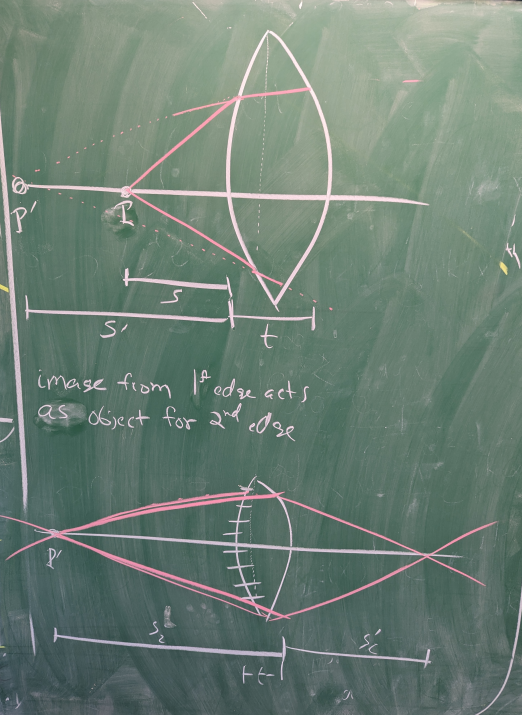 P'
P
S
S'
t
image from 1st edge acts
as object for 2nd edge
P'
S2
S2'
t